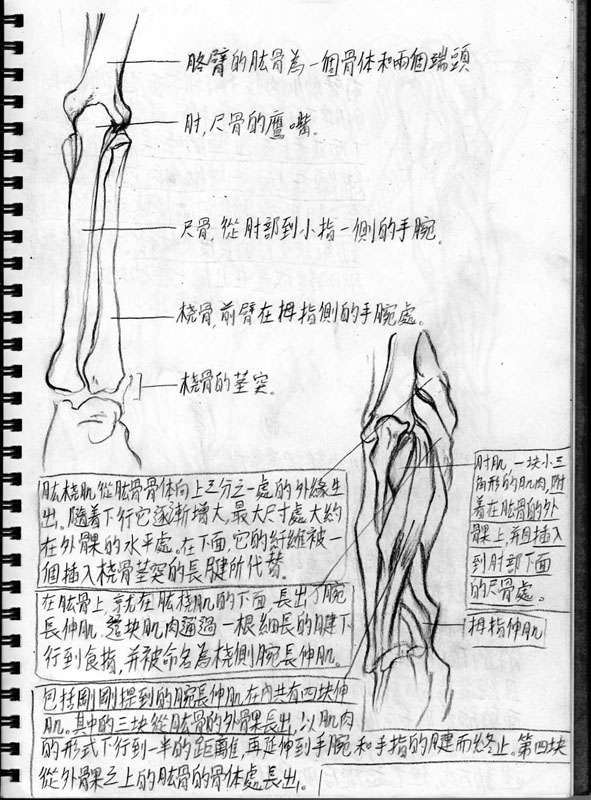 胳臂的肱骨為一個骨体和兩個端頭
肘,尺骨的鷹嘴。
尺骨,從肘部到小指一側的手腕。
桡骨,前臂在拇指側的手腕處。
桡骨的茎突。
肱桡肌從肱骨骨体向上三分之一處的外緣生
出。隨着下行它逐漸增大,最大尺寸處大約
在外髁的水平處。在下面,它的纤維被一
個插入桡骨茎突的長腱所代替。
在肱骨上,就在肱桡肌的下面,長出了腕
長伸肌。這块肌肉通過一根細長的腱下
行到食指,并被命名為桡側腕長伸肌。
包括剛剛提到的腕長伸肌在內共有四块伸
肌。其中的三块從肱骨的外骨髁長出,以肌肉
的形式下行到一半的距離,再延伸到手腕和手指的腱而終止。第四块
從外骨髁之上的肱骨的骨体處長出。
肘肌,一块小三
角形的肌肉,附
着在肱骨的外
髁上,并且插入
到肘部下面
的尺骨處。
拇指伸肌